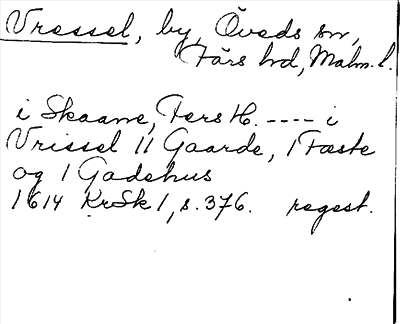 Vressel, by, Öveds sn,
Färs hd, Malm. l.
i Skaane, Fers H. ---- i
Vrissel 11 Gaarde, 1 Fæste
og 1 Gadehus
1614 KrSk 1, s. 376. regest.